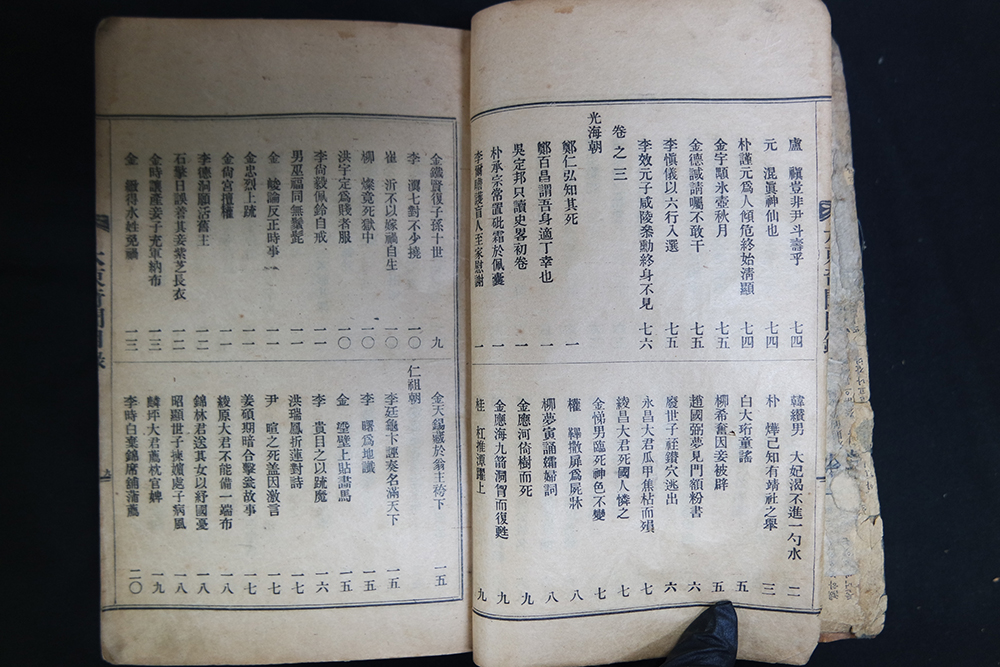 盧 稹豈非尹斗壽乎 七四
元 混眞神仙也 七四
朴謹元爲人傾危終始淸顯 七四
金宇顒氷壺秋月 七五
金德諴請囑不敢干 七五
李愼儀以六行入選 七五
李效元子咸陵 勳終身不見 七六
卷之三
光海朝
鄭仁弘知其死 一
鄭百昌謂吾身適丁幸也 一
吳定邦只讀史畧初卷 一
朴承宗常置砒霜於佩囊 一
李爾瞻 盲人至家慰謝 一
韓纘男 大妃渴不進一勺水 二
朴 燁已知有靖社之擧 三
白大珩童謠 五
柳希奮因妾被辟 五
趙國弼夢見門額粉書 六
廢世子 鑽穴逃出 六
永昌大君瓜甲焦枯而殞 七
綾昌大君死國人憐之 七
金悌男臨死神色不變 七
權 韠撤扉爲屍牀 八
柳夢寅誦孀婦詞 八
金應河倚樹而死 九
金應海九箭洞胷而復甦 九
桂 杠推潭躍上 九
金鐵賢復子孫十世 九
李 溟七對不少撓 一〇
崔 沂不以嫁禍自生 一〇
柳 燦竟死獄中 一〇
洪宇定爲賤者服 一〇
李尙毅佩鈴自戒 一一
男巫福同無鬚髭 一一
金 峻論反正時事 一一
金忠烈上疏 一一
金尙宮擅權 一一
李德泂願活舊主 一二
石擊日誤着其妾紫芝長衣 一二
金時讓產妾子充軍納布 一三
金 緻得水姓免禍 一三
仁祖朝
金天錫藏於翁主袴下 一五
李廷龜卞誣奏名滿天下 一五
李 曙爲地讖 一五
金 瑬壁上貼畵馬 一五
李 貴目之以疏魔 一六
洪瑞鳳折蓮對詩 一七
尹 暄之死盖因激言 一七
姜碩期暗合擧釜故事 一七
綾原大君不能備一端布 一八
錦林君送其女以紓國憂 一八
昭顯世子揀嬪處子病風 一八
麟坪大君薦枕官婢 一九
李時白棄錦席鋪蒲薦 二〇
大東奇聞目錄